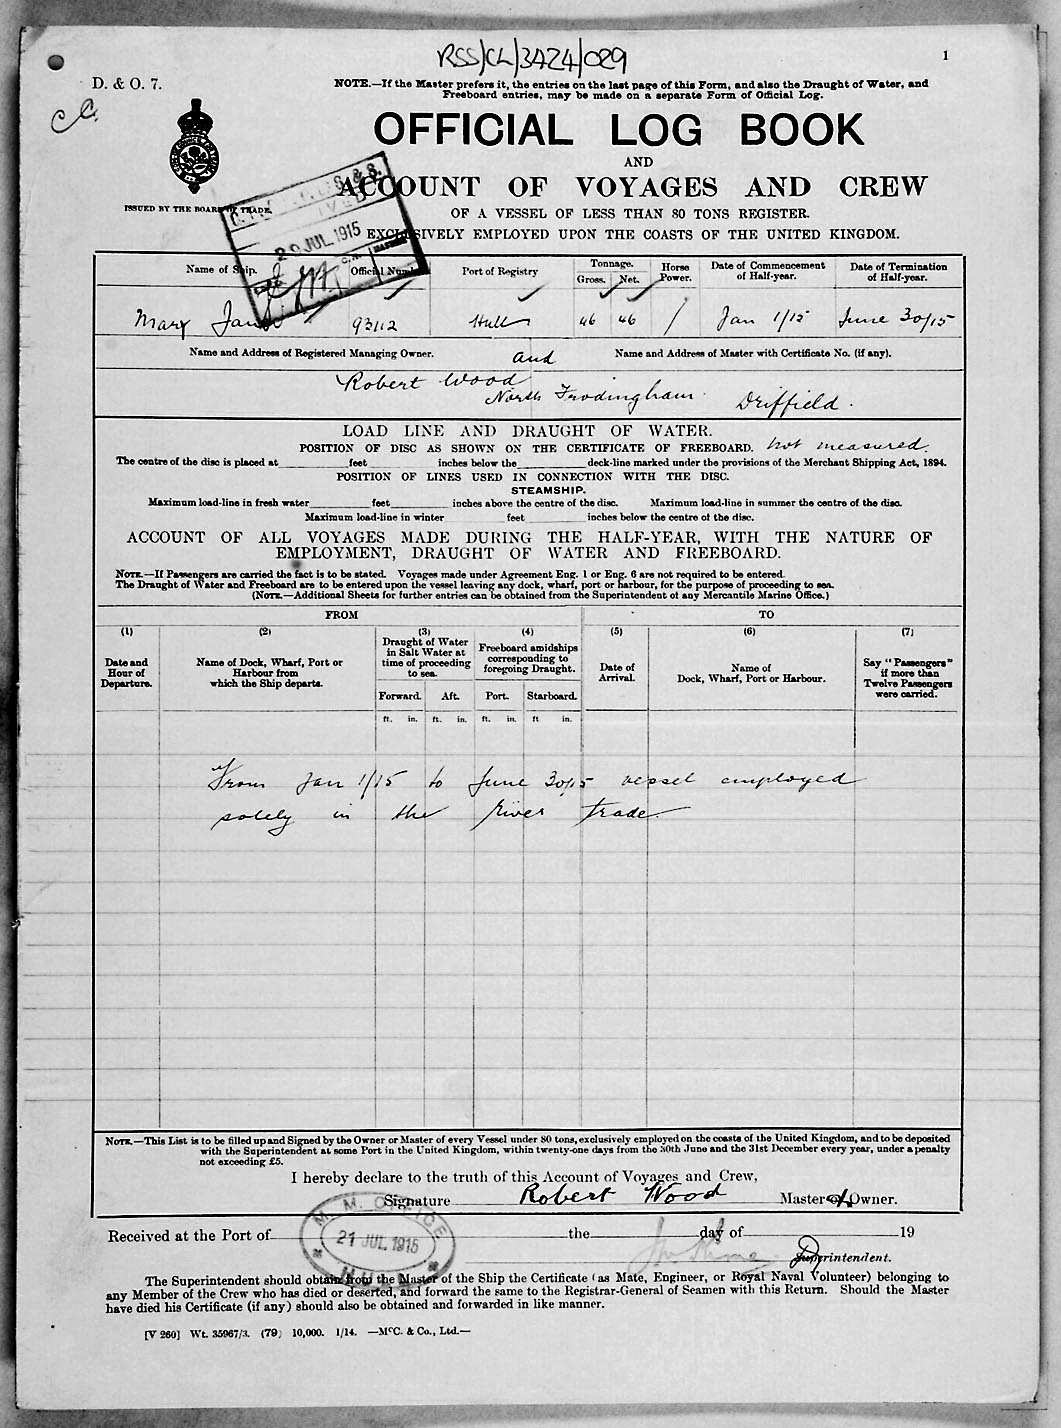 RSS/CL/3424/029
1
D. & O. 7.
NOTE.—If the Master prefers it, the entries on the last page of this Form, and also the Draught of Water, and
Freeboard entries, may be made on a separate Form of Official Log.
OFFICIAL LOG BOOK
AND
ACCOUNT OF VOYAGES AND CREW
ISSUED BY THE BOARD OF TRADE.
OF A VESSEL OF LESS THAN 80 TONS REGISTER.
EXCLUSIVELY EMPLOYED UPON THE COASTS OF THE UNITED KINGDOM.
20 JUL 1915
Name of Ship. Official Number Port of Registry Tonnage. Gross. Net. Horse Power. Date of Commencement of Half-year. Date of Termination of Half-year.
Mary Jane 93112 Hull 46 46 / Jan 1/15 June 30/15
Name and Address of Registered Managing Owner. and Name and Address of Master with Certificate No. (if any).
Robert Wood
North Frodingham Driffield.
LOAD LINE AND DRAUGHT OF WATER.
POSITION OF DISC AS SHOWN ON THE CERTIFICATE OF FREEBOARD. not measured.
The centre of the disc is placed at feet inches below the deck-line marked under the provisions of the Merchant Shipping Act, 1894.
POSITION OF LINES USED IN CONNECTION WITH THE DISC.
STEAMSHIP.
Maximum load-line in fresh water feet inches above the centre of the disc. Maximum load-line in summer the centre of the disc.
Maximum load-line in winter feet inches below the centre of the disc.
ACCOUNT OF ALL VOYAGES MADE DURING THE HALF-YEAR, WITH THE NATURE OF
EMPLOYMENT, DRAUGHT OF WATER AND FREEBOARD.
NOTE.—If Passengers are carried the fact is to be stated. Voyages made under Agreement Eng. 1 or Eng. 6 are not required to be entered.
The Draught of Water and Freeboard are to be entered upon the vessel leaving any dock, wharf, port or harbour, for the purpose of proceeding to sea.
(NOTE.—Additional Sheets for further entries can be obtained from the Superintendent of any Mercantile Marine Office.)
FROM TO
(1) (2) (3) (4) (5) (6) (7)
Date and Hour of Departure. Name of Dock, Wharf, Port or Harbour from which the Ship departs. Draught of Water in Salt Water at time of proceeding to sea. Freeboard amidships corresponding to foregoing Draught. Date of Arrival. Name of Dock, Wharf, Port or Harbour. Say "Passengers" if more than Twelve Passengers were carried.
Forward. Aft. Port. Starboard.
ft. in. ft. in. ft. in. ft in.
From Jan 1/15 to June 30/15 vessel employed
solely in the river trade
NOTE.—This List is to be filled up and Signed by the Owner or Master of every Vessel under 80 tons, exclusively employed on the coasts of the United Kingdom, and to be deposited
with the Superintendent at some Port in the United Kingdom, within twenty-one days from the 30th June and the 31st December every year, under a penalty
not exceeding £5.
I hereby declare to the truth of this Account of Voyages and Crew,
Signature Robert Wood Master or Owner.
M. M. OFFICE
21 JUL 1915
HULL
Received at the Port of the day of 19
Superintendent.
The Superintendent should obtain from the Master of the Ship the Certificate (as Mate, Engineer, or Royal Naval Volunteer) belonging to
any Member of the Crew who has died or deserted, and forward the same to the Registrar-General of Seamen with this Return. Should the Master
have died his Certificate (if any) should also be obtained and forwarded in like manner.
[V 260] Wt. 35967/3. (79) 10,000. 1/14. —McC. & Co., Ltd.—